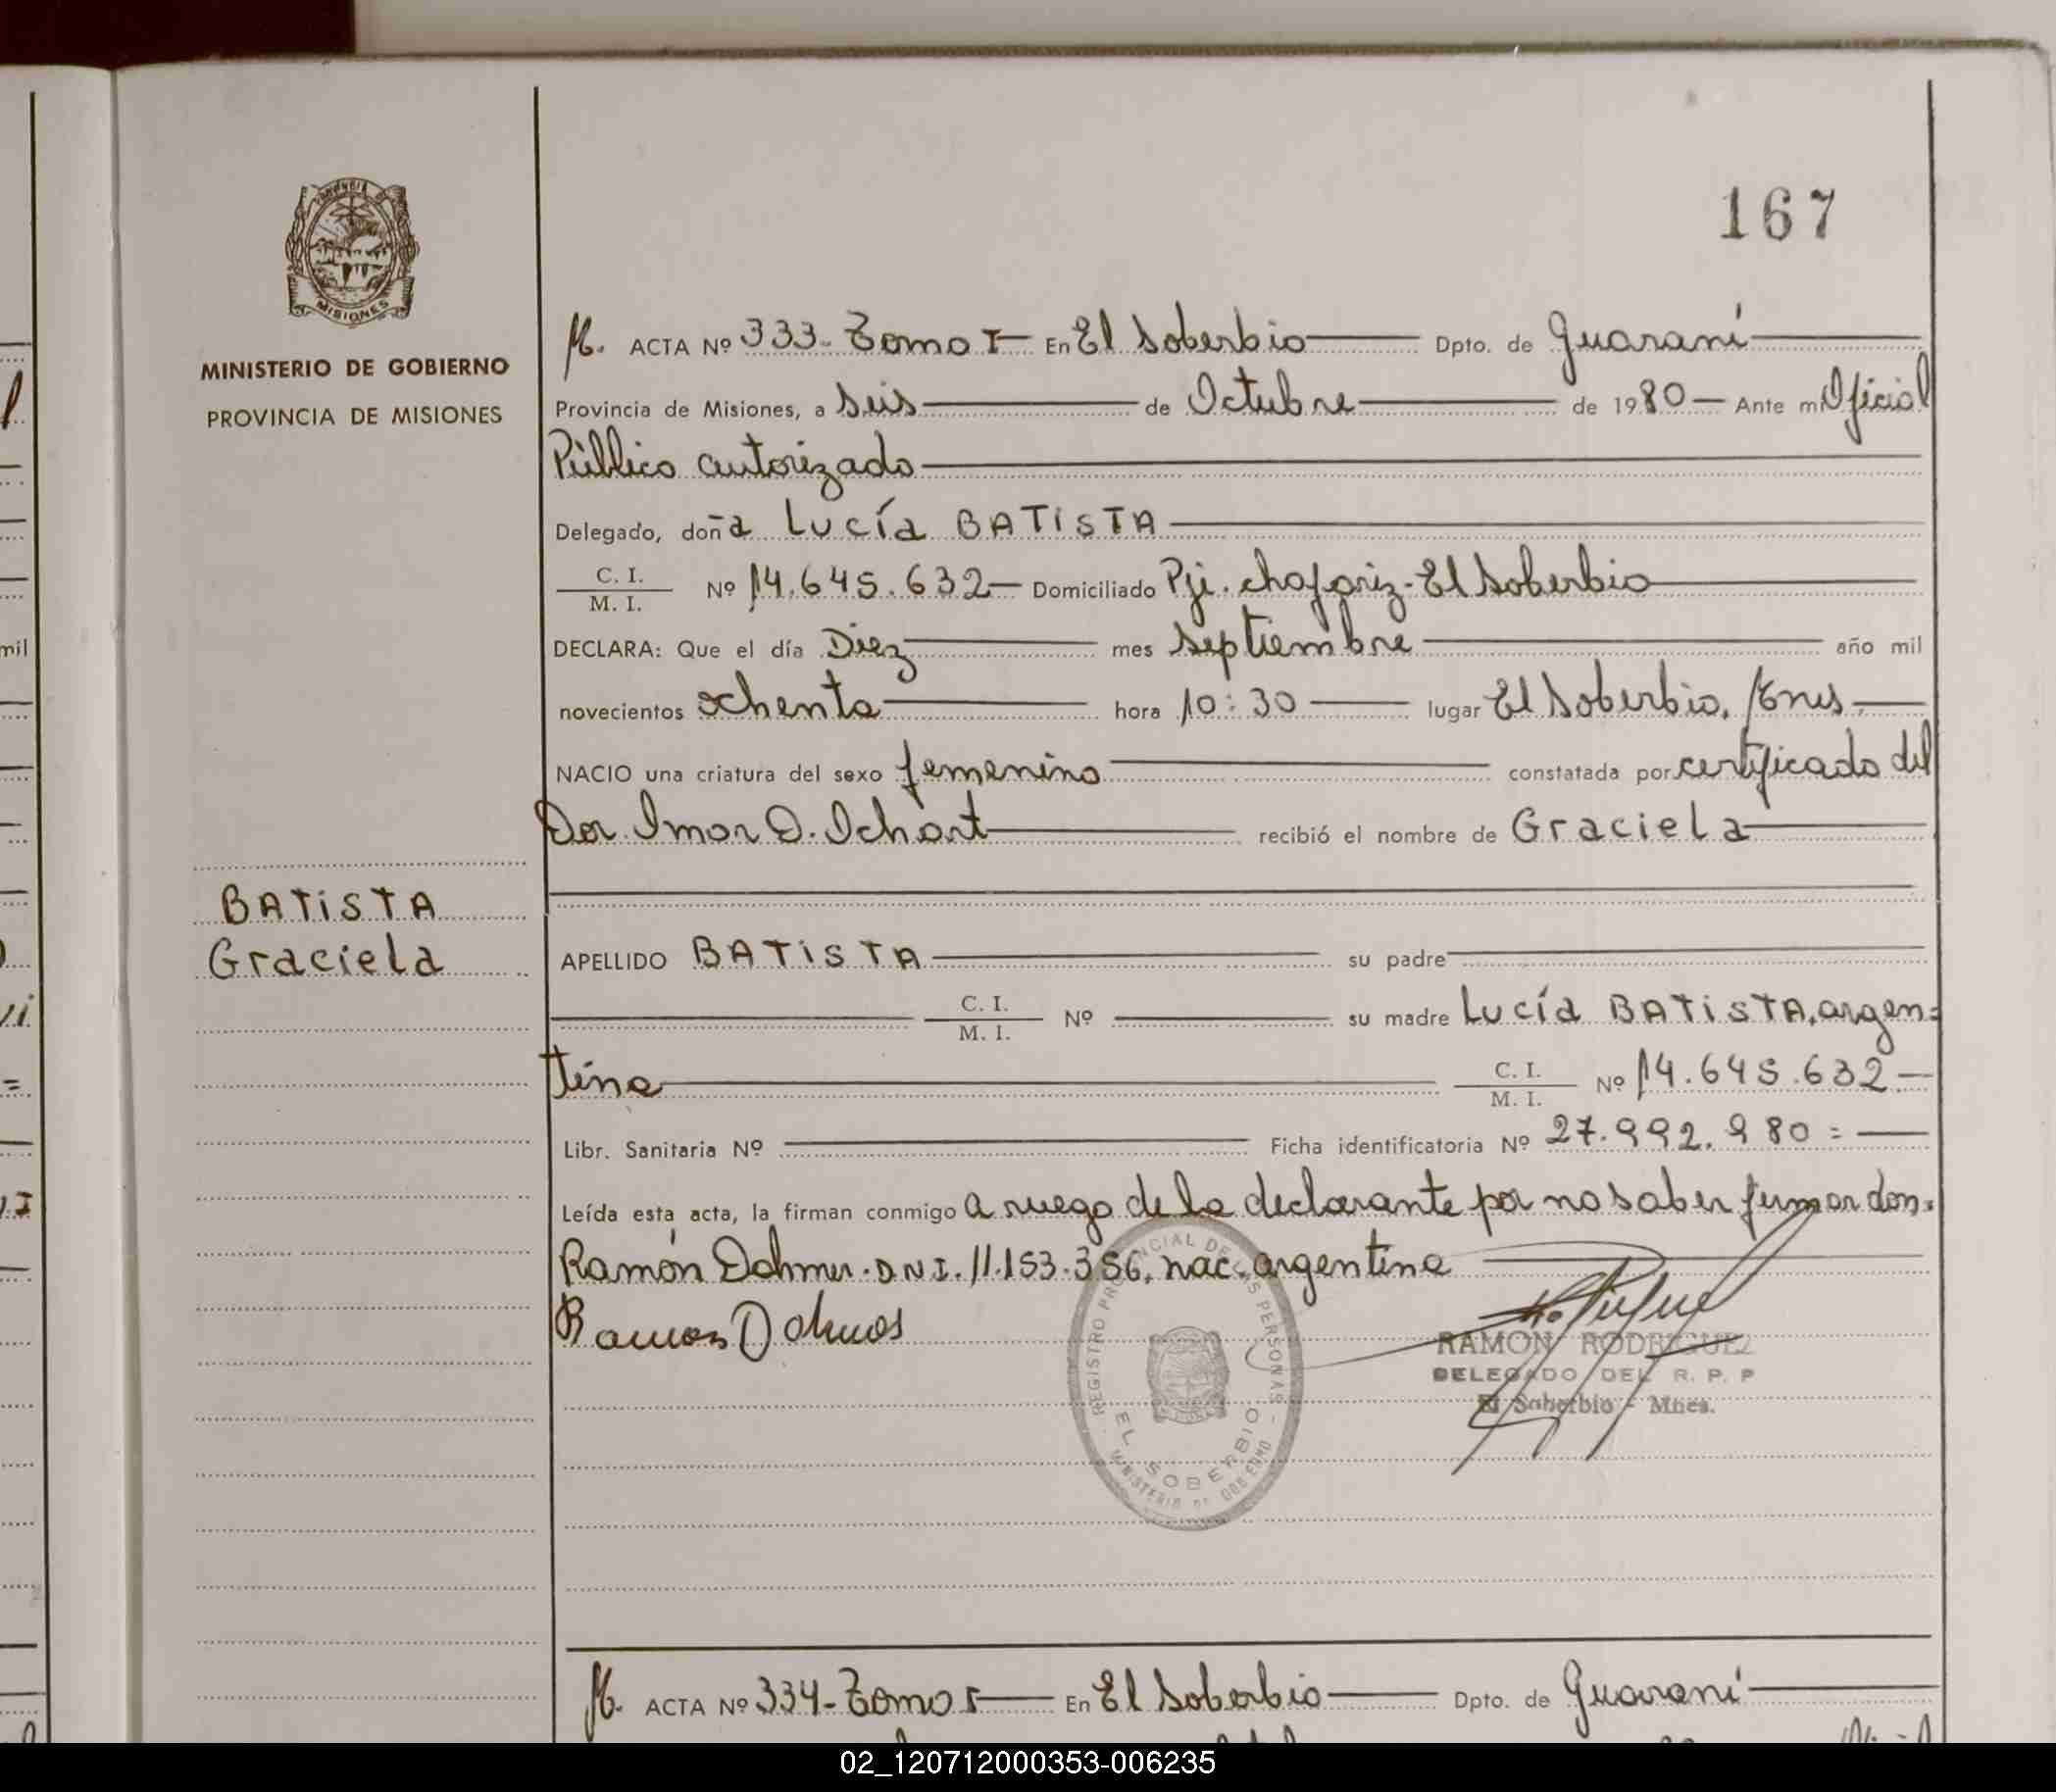 167
PROVINCIA DE
MISIONES
MINISTERIO DE GOBIERNO
PROVINCIA DE MISIONES
BATISTA
Graciela
M. ACTA Nº 333- Tomo I En El Soberbio Dpto. de Guaraní
Provincia de Misiones, a Seis de Octubre de 1980 Ante mi Oficial
Público autorizado
Delegado, doña Lucía BATISTA
C. I.
M. I. Nº 14.645.632 Domiciliado Pje. chafariz-El Soberbio
DECLARA: Que el día Diez mes septiembre año mil
novecientos ochenta hora 10:30 lugar El Soberbio, Mnes.
NACIO una criatura del sexo femenino constatada por certificado del
Dor. Imar O. Ichart recibió el nombre de Graciela
APELLIDO BATISTA su padre
C. I.
M. I. Nº su madre Lucía BATISTA, argen=
tina C. I.
M. I. Nº 14.645.632
Libr. Sanitaria Nº Ficha identificatoria Nº 27.992.980=
Leída esta acta, la firman conmigo a ruego de la declarante por no saber firmar don=
Ramón Dahmer. D.N.I. 11.153.356, nac. argentina
Ramon
REGISTRO PROVINCIAL DE LAS PERSONAS
EL SOBERBIO
MINISTERIO DE GOBIERNO
RAMON RODRIGUEZ
DELEGADO DEL R. P. P
El Soberbio - Mnes.
M. ACTA Nº 334- Tomo I En El Soberbio Dpto. de Guaraní
mil
02_120712000353-006235